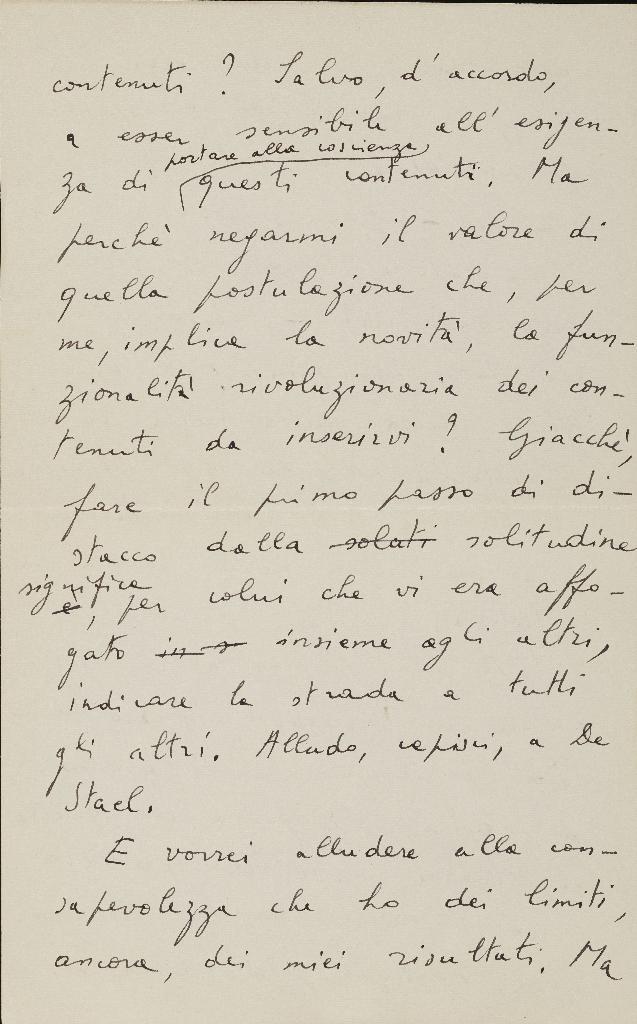 contenuti? Salvo, d'accordo,
a esser sensibile all'esigen-
portare alla coscienza
za di questi contenuti. Ma
perchè negarmi il valore di
quella postulazione che, per
me, implica la novità, la fun-
zionalità rivoluzionaria dei con-
tenuti da inserirvi? Giacchè,
fare il primo passo di di-
stacco dalla soluti solitudine
significa
è, per colui che vi era affo-
gato in s insieme agli altri,
indicare la strada a tutti
gli altri. Alludo, capisci, a De
Stael.
E vorrei alludere alla con-
sapevolezza che ho dei limiti,
ancora, dei miei risultati. Ma